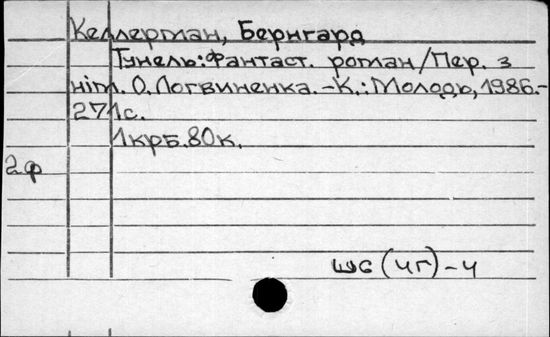 Келлерман, Бернгард
Тунель: Фантаст. роман / Пер. з
нім. О. Логвиненка. - К.: Молодь, 1986. -
271с.
1крб. 80к.
2ф
Ш6(4Г)-4